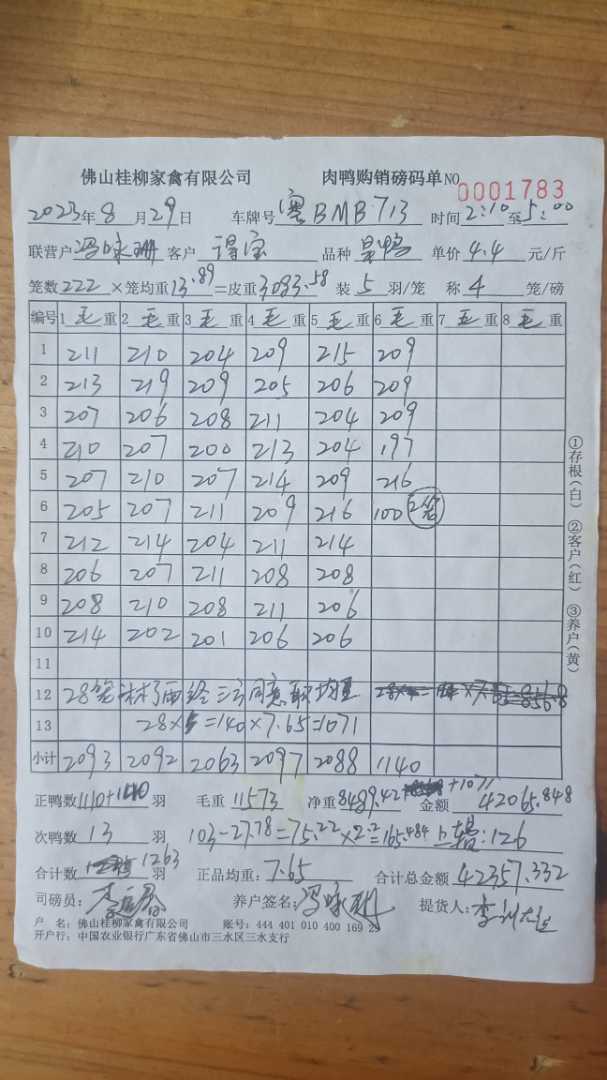 佛山桂柳家禽有限公司 肉鸭购销磅码单 NO 0001783
2023年8月29日 车牌号 粤BMB·713 时间2:10至5:00
联营户 冯咏珊 客户 得宝 品种 单价4.4元/斤
笼数222×笼均重13.89=皮重3083.58 装5羽/笼 称4笼/磅
编号 1毛重 2毛重 3毛重 4毛重 5毛重 6毛重 7毛重 8毛重
1 211 210 204 209 215 209
2 213 219 209 205 206 209
3 207 206 208 211 204 209
4 210 207 200 213 204 197
5 207 210 207 214 209 216
6 205 207 211 209 216 100 2笼
7 212 214 204 211 214
8 206 207 211 208 208
9 208 210 208 211 206
10 214 202 201 206 206
11
12 28笼 三方同意取均重
13 28×5=140×7.65=1071
小计 2093 2092 2063 2097 2088 1140
正鸭数1110+140羽 毛重11573 净重8489.42+1071 金额42065.848
次鸭数13羽 103-27.78=75.22×2.2=165.484 上鸭:126
合计数1263羽 正品均重:7.65 合计总金额42357.332
司磅员: 养户签名:冯咏珊 提货人:
户 名:佛山桂柳家禽有限公司 账号:444 401 010 400 169 29
开户行:中国农业银行广东省佛山市三水区三水支行
①存根(白) ②客户(红) ③养户(黄)